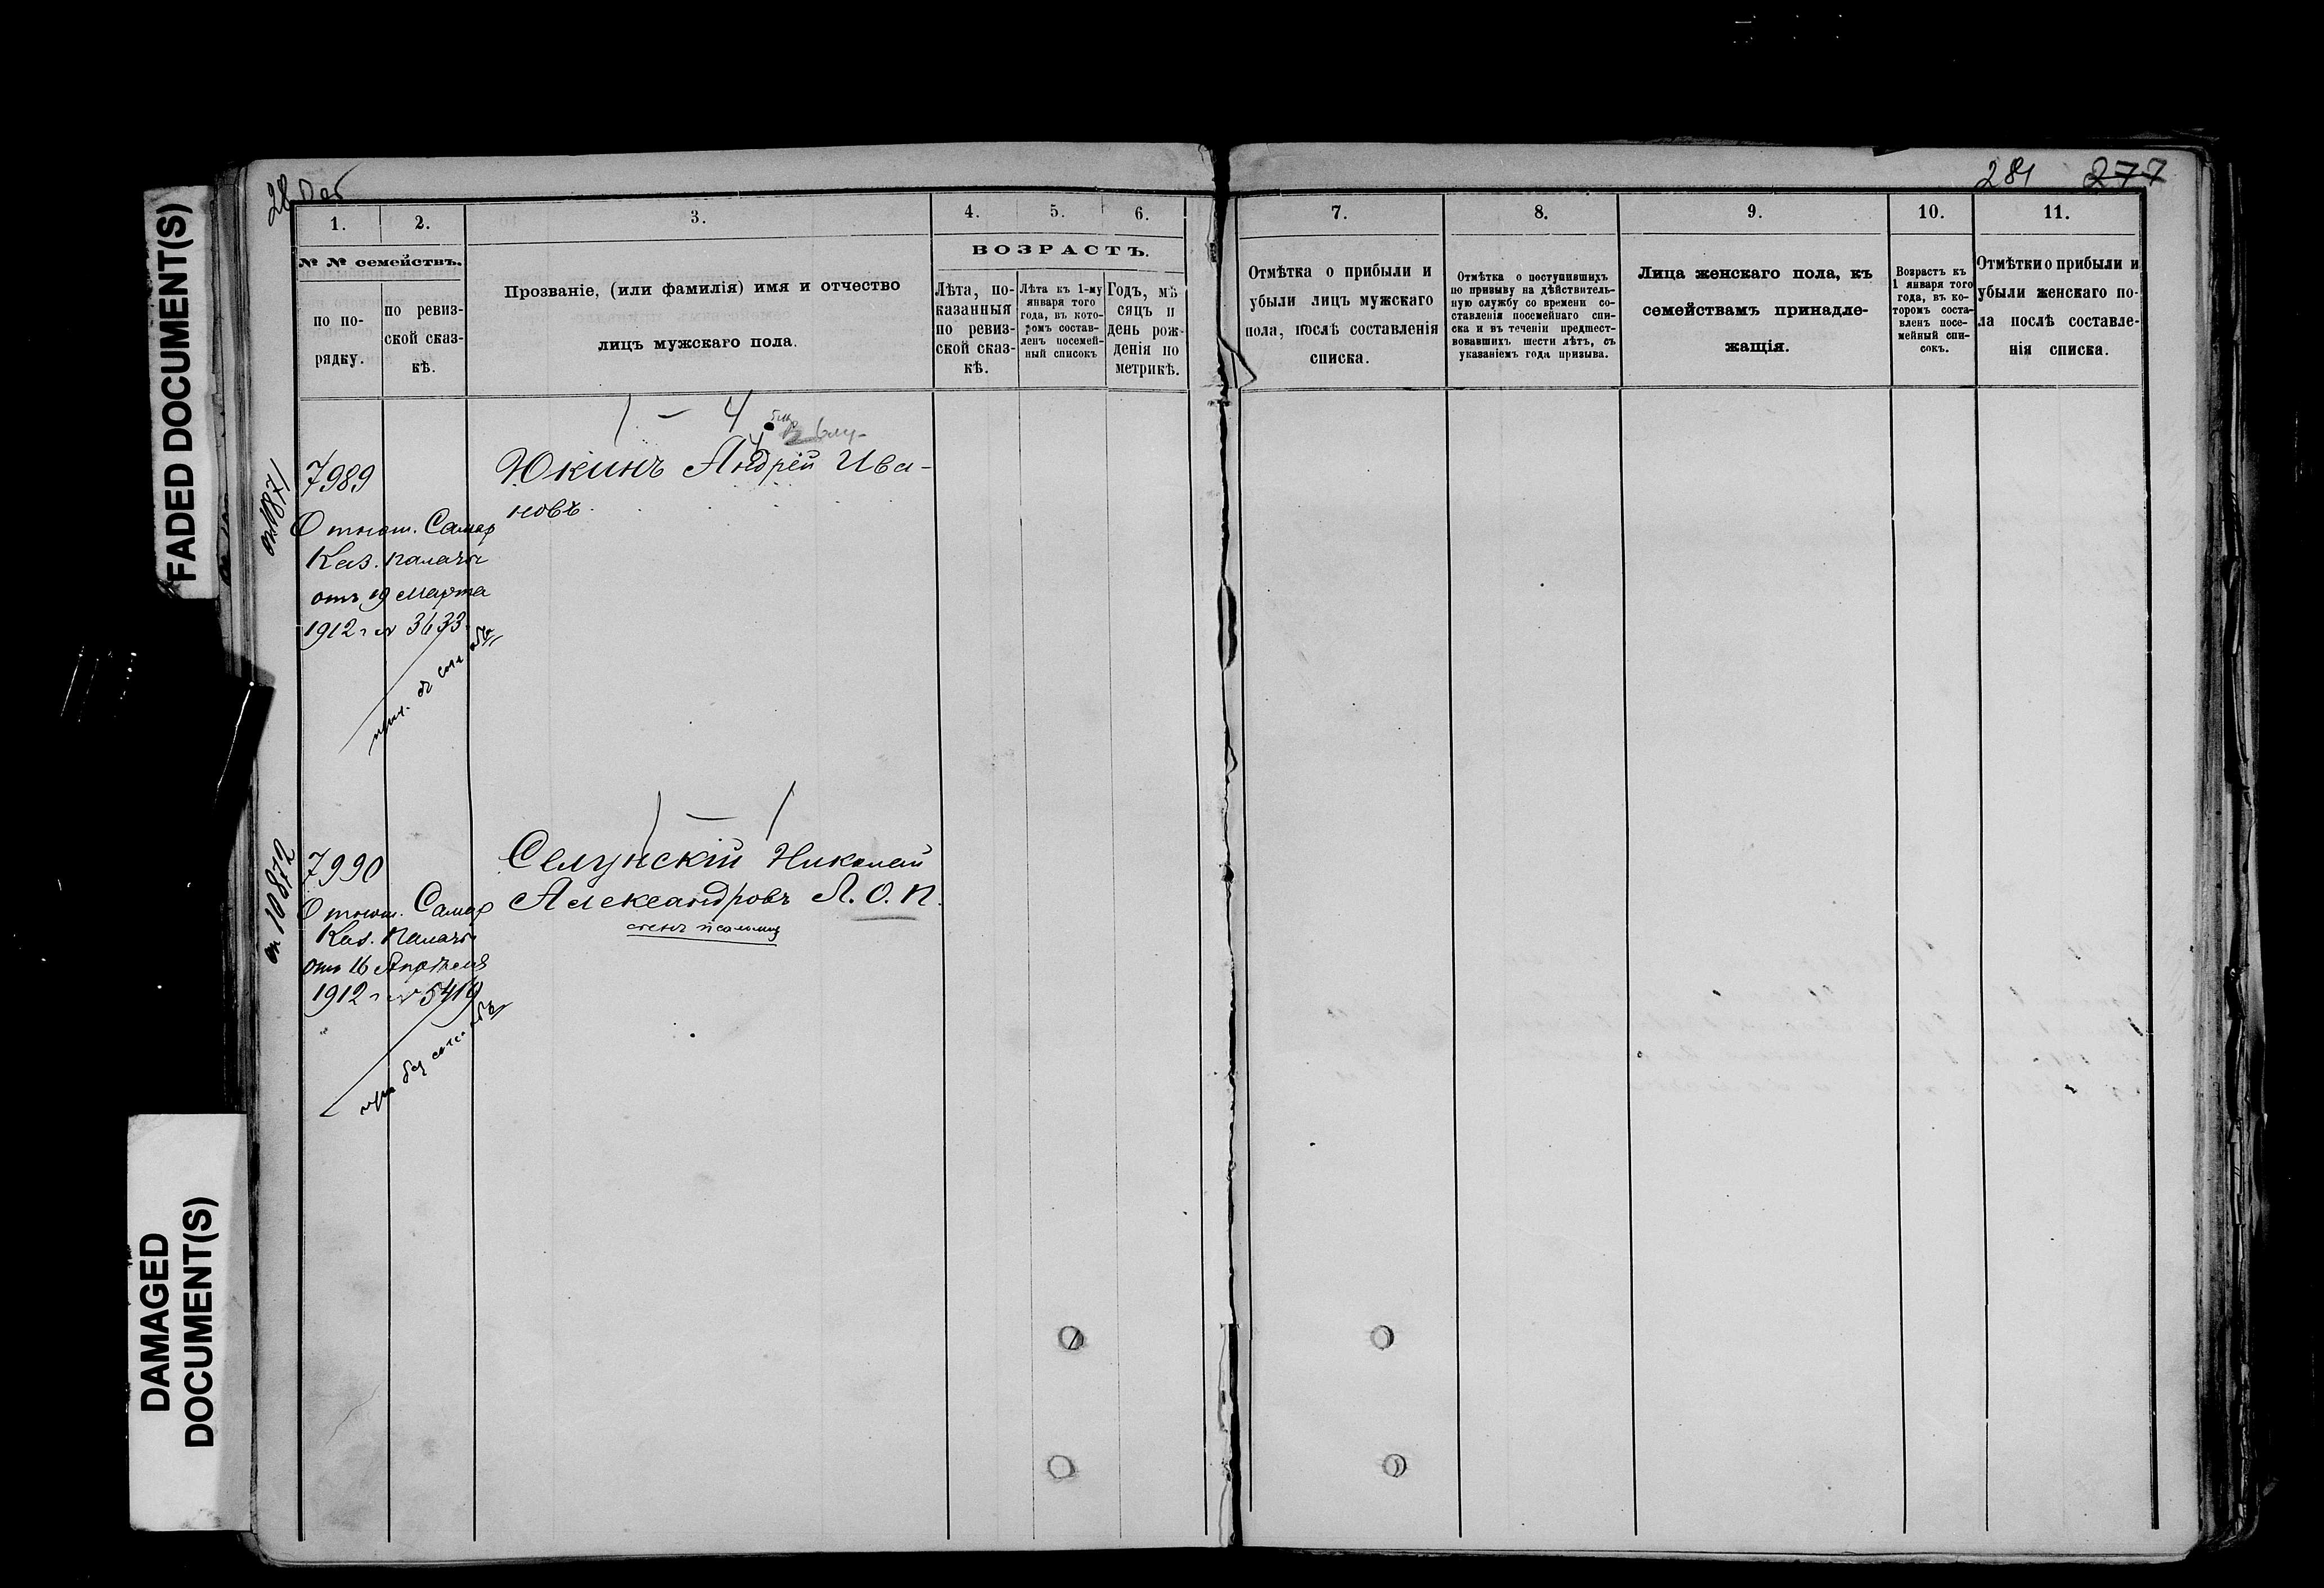 FADED DOCUMENT(S)
DAMAGED
DOCUMENT(S)
281 277
1.
2.
3.
4.
5.
6.
№ № семействъ.
по по-
рядку.
по ревиз-
ской сказ-
кѣ.
Прозваніе, (или фамилія) имя и отчество
лицъ мужскаго пола.
ВОЗРАСТЪ.
Лѣта, по-
казанныя
по ревиз-
ской сказ-
кѣ.
Лѣта къ 1-му
января того
года, въ кото-
ромъ состав-
ленъ посемей-
ный списокъ
Годъ, мѣ
сяцъ и
день рож-
денія по
метрикѣ.
7.
8.
9.
10.
11.
Отмѣтка о прибыли и
убыли лицъ мужскаго
пола, послѣ составленія
списка.
Отмѣтка о поступившихъ
по призыву на дѣйствитель-
ную службу со времени со-
ставленія посемейнаго спи-
ска и въ теченіи предшест-
вовавшихъ шести лѣтъ, съ
указаніемъ года призыва.
Лица женскаго пола, къ
семействамъ принадле-
жащія.
Возрастъ къ
1 января того
года, въ ко-
торомъ соста-
вленъ посе-
мейный спи-
сокъ.
Отмѣтки о прибыли и
убыли женскаго по-
ла послѣ составле-
нія списка.
1 – 4
10871
7989
Юкинъ Андрей Ива-
новъ.
Отнош. Самар
Каз. палаты
отъ 19 Марта
1912 г № 3633
1 – 1
10872
7990
Селунскій Николай
Александровъ Л. О. П.
Отнош. Самар
Каз. Палаты
отъ 16 Апрѣля
1912 г № 5419